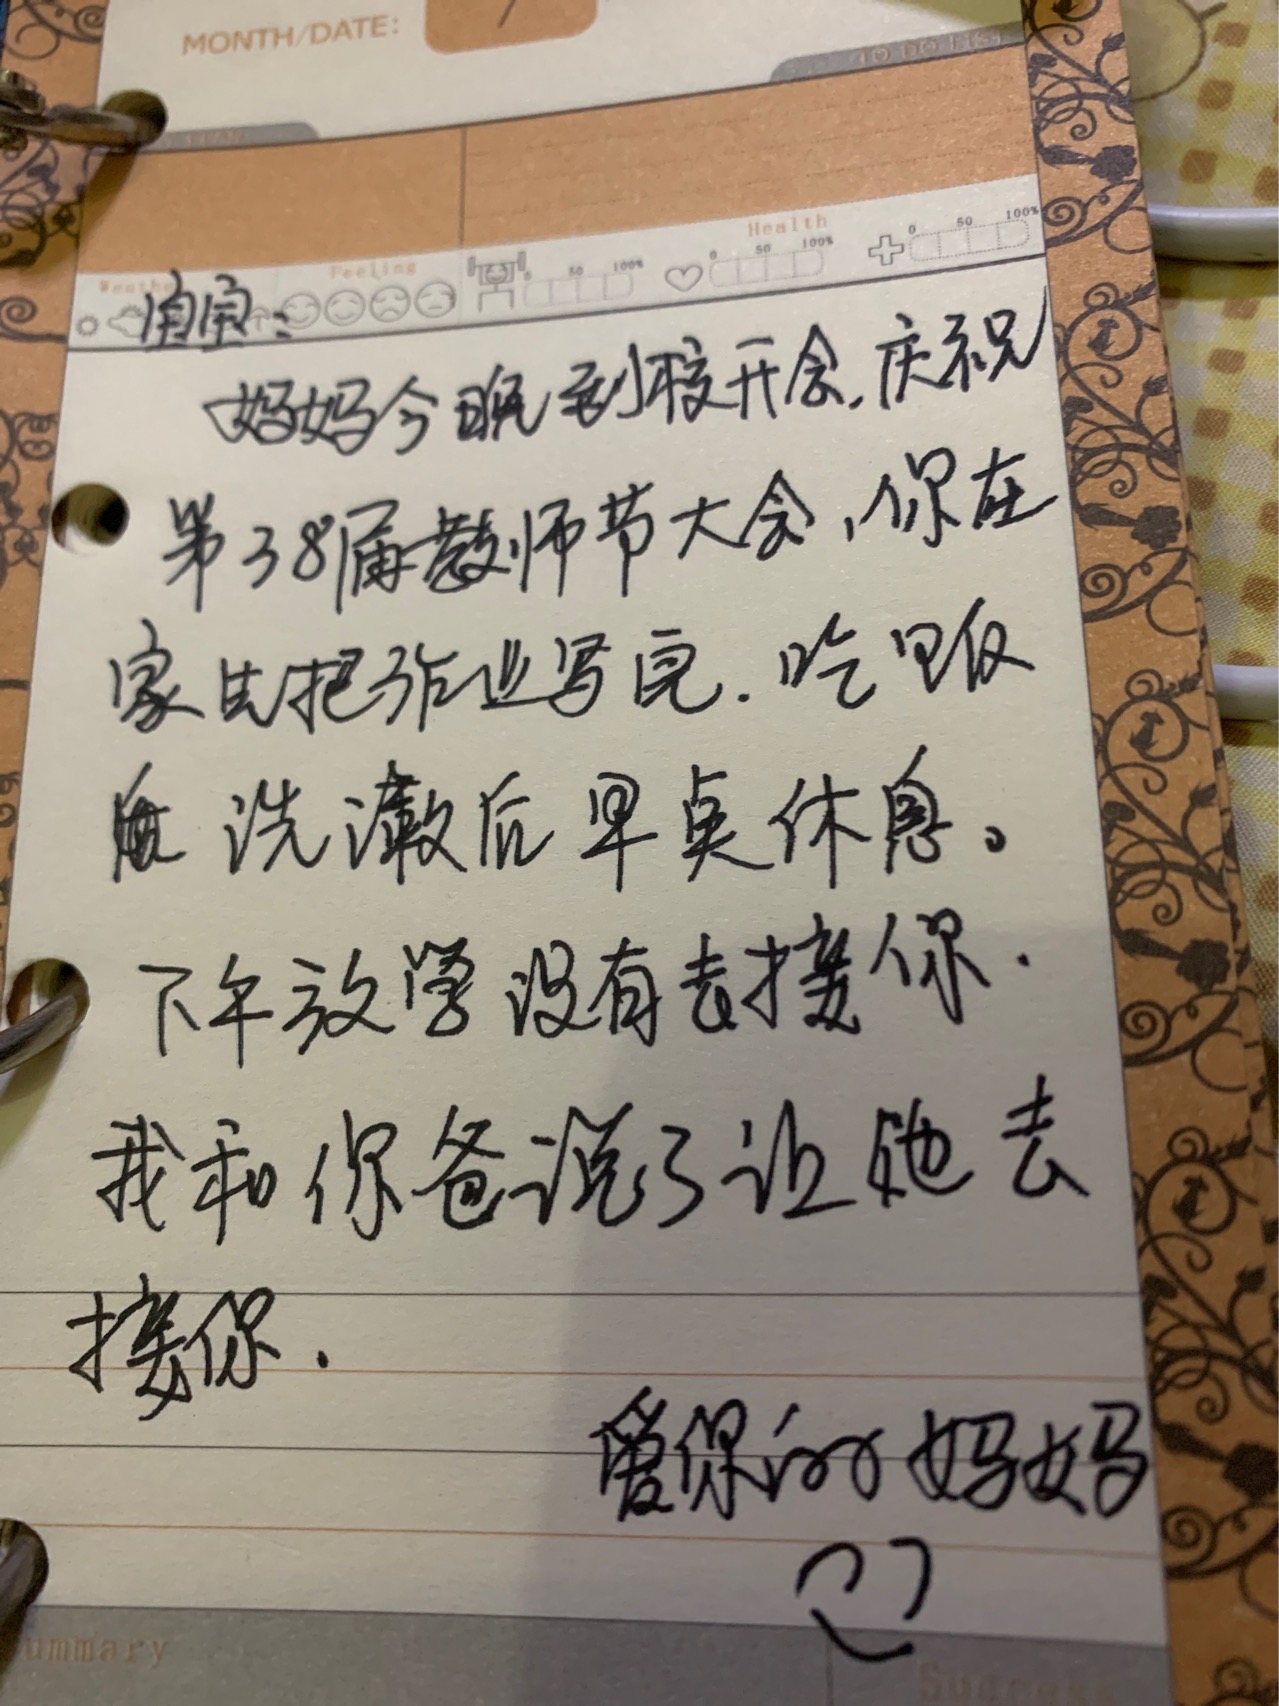 MONTH/DATE: 7
TO DO LIST
Weather Feeling 0 50 100% Health 0 50 100% 0 50 100%
妈妈今晚到校开会,庆祝
第38届教师节大会,你在
家先把作业写完.吃了饭
洗漱后早点休息。
下午放学没有去接你.
我和你爸说了让他去
接你.
爱你的妈妈
ummary
Success